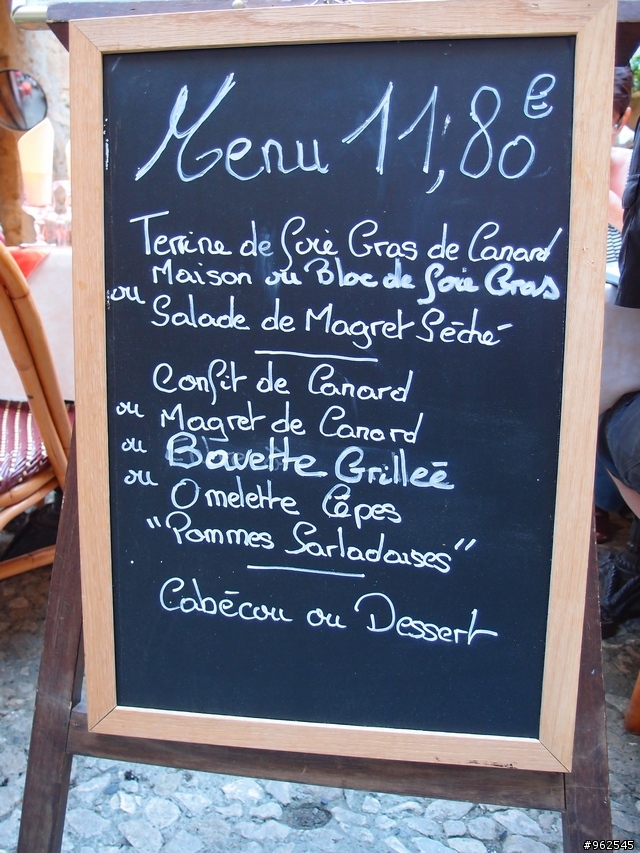 Menu 11,80 €
Terrine de Foie Gras de Canard
Maison ou Bloc de Foie Gras
ou Salade de Magret Séché
Confit de Canard
ou Magret de Canard
ou Bavette Grilleé
ou Omelette Cêpes
"Pommes Sarladaises"
Cabécou ou Dessert
#962545